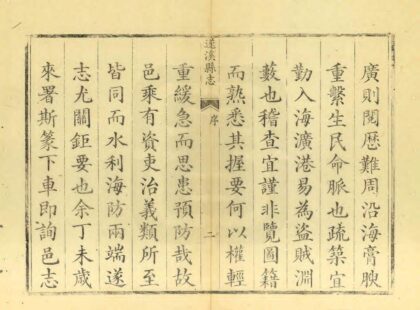 廣則閱歷難周沿海膏腴
重繫生民命脈也疏築宜
勤入海廣港易為盜賊淵
藪也稽查宜謹非覽圖籍
而熟悉其握要何以權輕
遂溪縣志
序
二
重緩急而思患預防哉故
邑乘有資吏治義類所至
皆同而水利海防兩端遂
志尤關鉅要也余丁未歲
來署斯篆下車即詢邑志